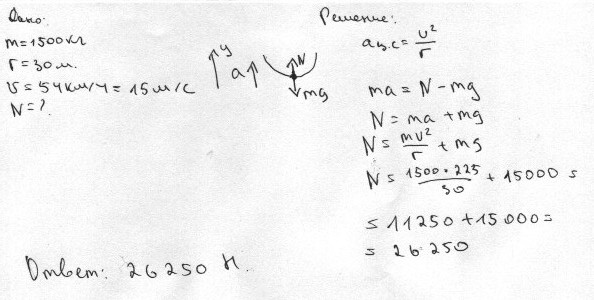 Дано:
m=1500кг
r=30м.
v=54км/ч=15м/с
N=?
y
a
N
mg
Решение:
aц.с=v²/r
ma=N-mg
N=ma+mg
N=mv²/r+mg
N=1500·225/30+15000=
=11250+15000=
=26250
Ответ: 26250 Н.